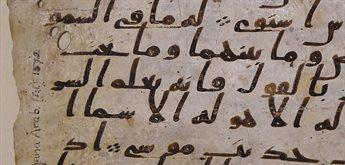 ش استوى له ما في السمو
ض وما بينهما وما تحت
بالقول فانه يعلم السر
له الا هو له الاسما ا
حديث موسى اذ
gana Arab. (Isl.) 1572